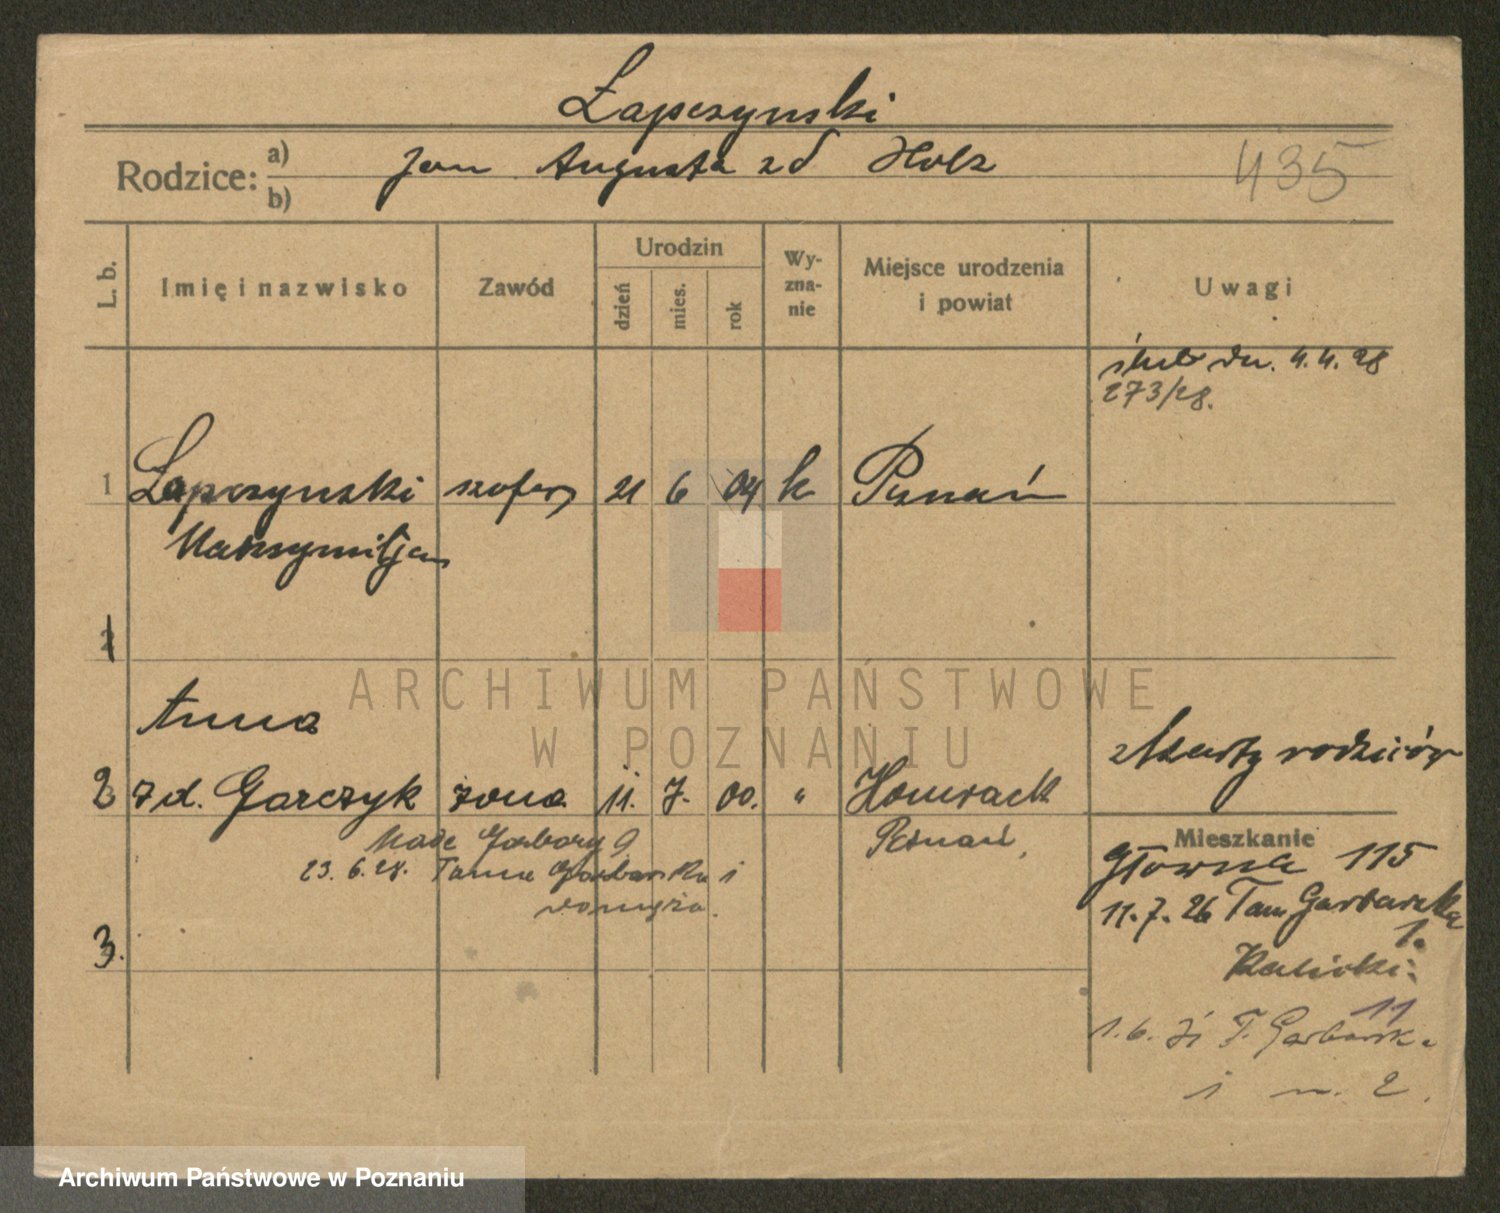 Łapczynski
Rodzice: a) Jan Augusta zd Holz
b)
435
L. b.
Imię i nazwisko
Zawód
Urodzin
dzień
mies.
rok
Wy-
zna-
nie
Miejsce urodzenia
i powiat
Uwagi
ślub dn. 4.4.28
273/28.
1 Łapczynski szofer 21 6 04 k Poznań
Maksymiljan
2
Anna
z karty rodziców
2 zd. Garczyk żona 11. 7. 00. "
Poznań,
Małe Garbary 9
23. 6. 28. Tama Garbarska 1
Mieszkanie
Główna 115
11.7.26 Tam Garbarska
1.
3.
11
1.6. 31 T. Garbarska
1 m. 2.
ARCHIWUM PAŃSTWOWE
W POZNANIU
Archiwum Państwowe w Poznaniu